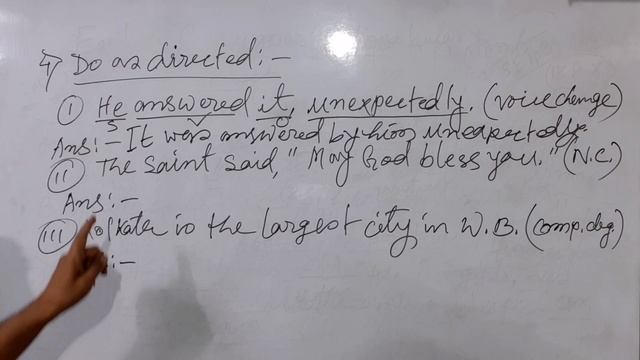 4) Do as directed:-
(i) He answered it, unexpectedly. (voice change)
S
Ans:- It was answered by him unexpectedly.
(ii) The saint said, "May God bless you." (N.C.)
Ans:-
(iii) is the largest city in W.B. (comp. deg.)
:-